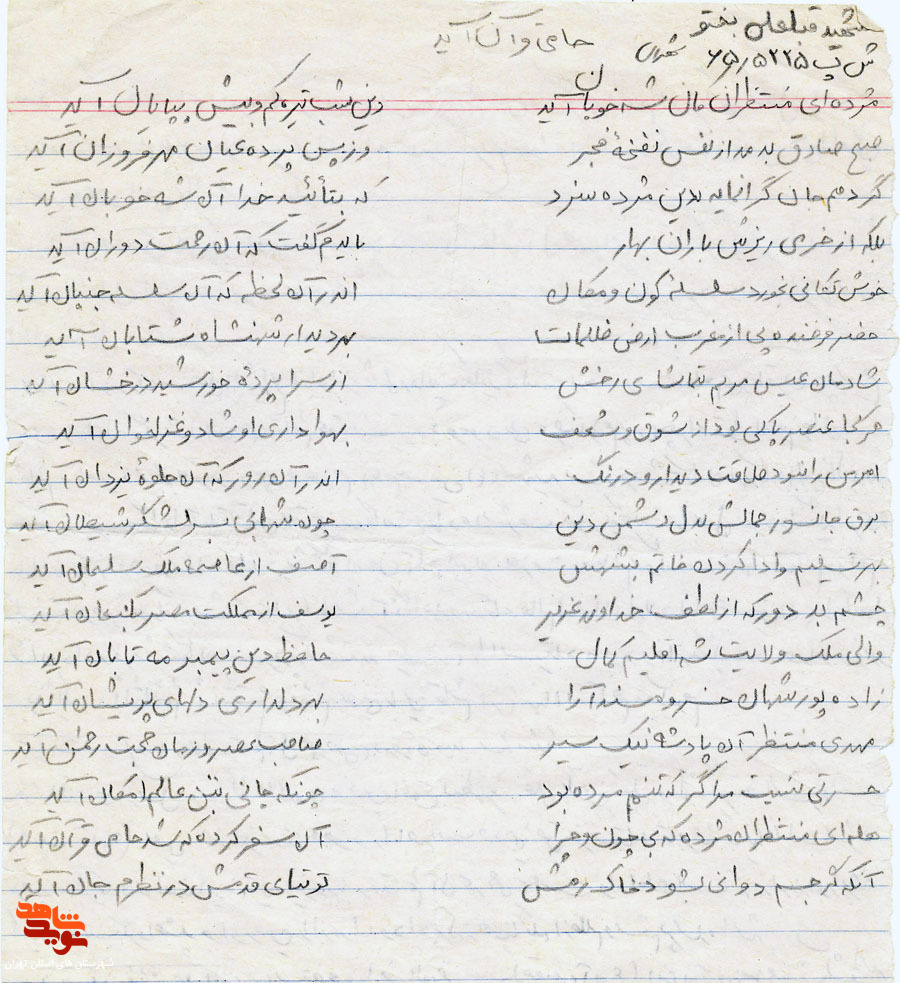 شهید قبلعلی بختو
حامی قرآن آید
ش پ ۶۵/۵۲۲۵ تهران
مژده ای منتظران مال شه خوبان آید وین شب تیره کم و بیش بپایان آید
صبح صادق بدمد از نفس نفخهٔ فجر وز پس پرده عیان مهر فروزان آید
گر دهم جان گرانمایه بدین مژده سزد که بتأئید خدا آن شه خوبان آید
بلکه از خرمی ریزش باران بهار بایدم گفت که آن رحمت دوران آید
خوش تکانی بخورد سلسلهٔ کون و مکان اندر آن لحظه که آن سلسه جنبان آید
خضر فرخنده پی از مغرب ارض ظلمات بهر دیدار شهنشاه شتابان آید
شادمان عیسی مریم بتماشای رخش از سرا پردهٔ خورشید درخشان آید
هر کجا عنصر پاکی بود از شوق و شعف بهواداری او شاد و غزلخوان آید
اهرمن را نبود طاقت دیدار و درنگ اندر آن روز که آن جلوهٔ یزدان آید
برق جانسوز جمالش بدل دشمن دین چون شهابی بسر لشگر شیطان آید
بهر تسلیم و ادا کردن خاتم بشهش آصف از عاصمهٔ ملک سلیمان آید
چشم بد دور که از لطف خداوند عزیز یوسف از مملکت مصر بکنعان آید
والی ملک ولایت شه اقلیم کمال حافظ دین پیمبر مه تابان آید
زاده پور شهان خسرو مسند آرا بهر دلداری دلهای پریشان آید
مهدی منتظر آن پادشه نیک سیر صاحب عصر و زمان حجت رحمن آید
حسرتی نیست مرا گر که تنم مرده بود چونکه جانی بتن عالم امکان آید
هله ای منتظران مژده که بی چون و چرا آن سفر کرده که شد حامی قرآن آید
آنکه گر جسم دوانی بشود خاک رهش توتیای قدمش در نظرم جان آید
نوید شاهد
شهرستان های استان تهران